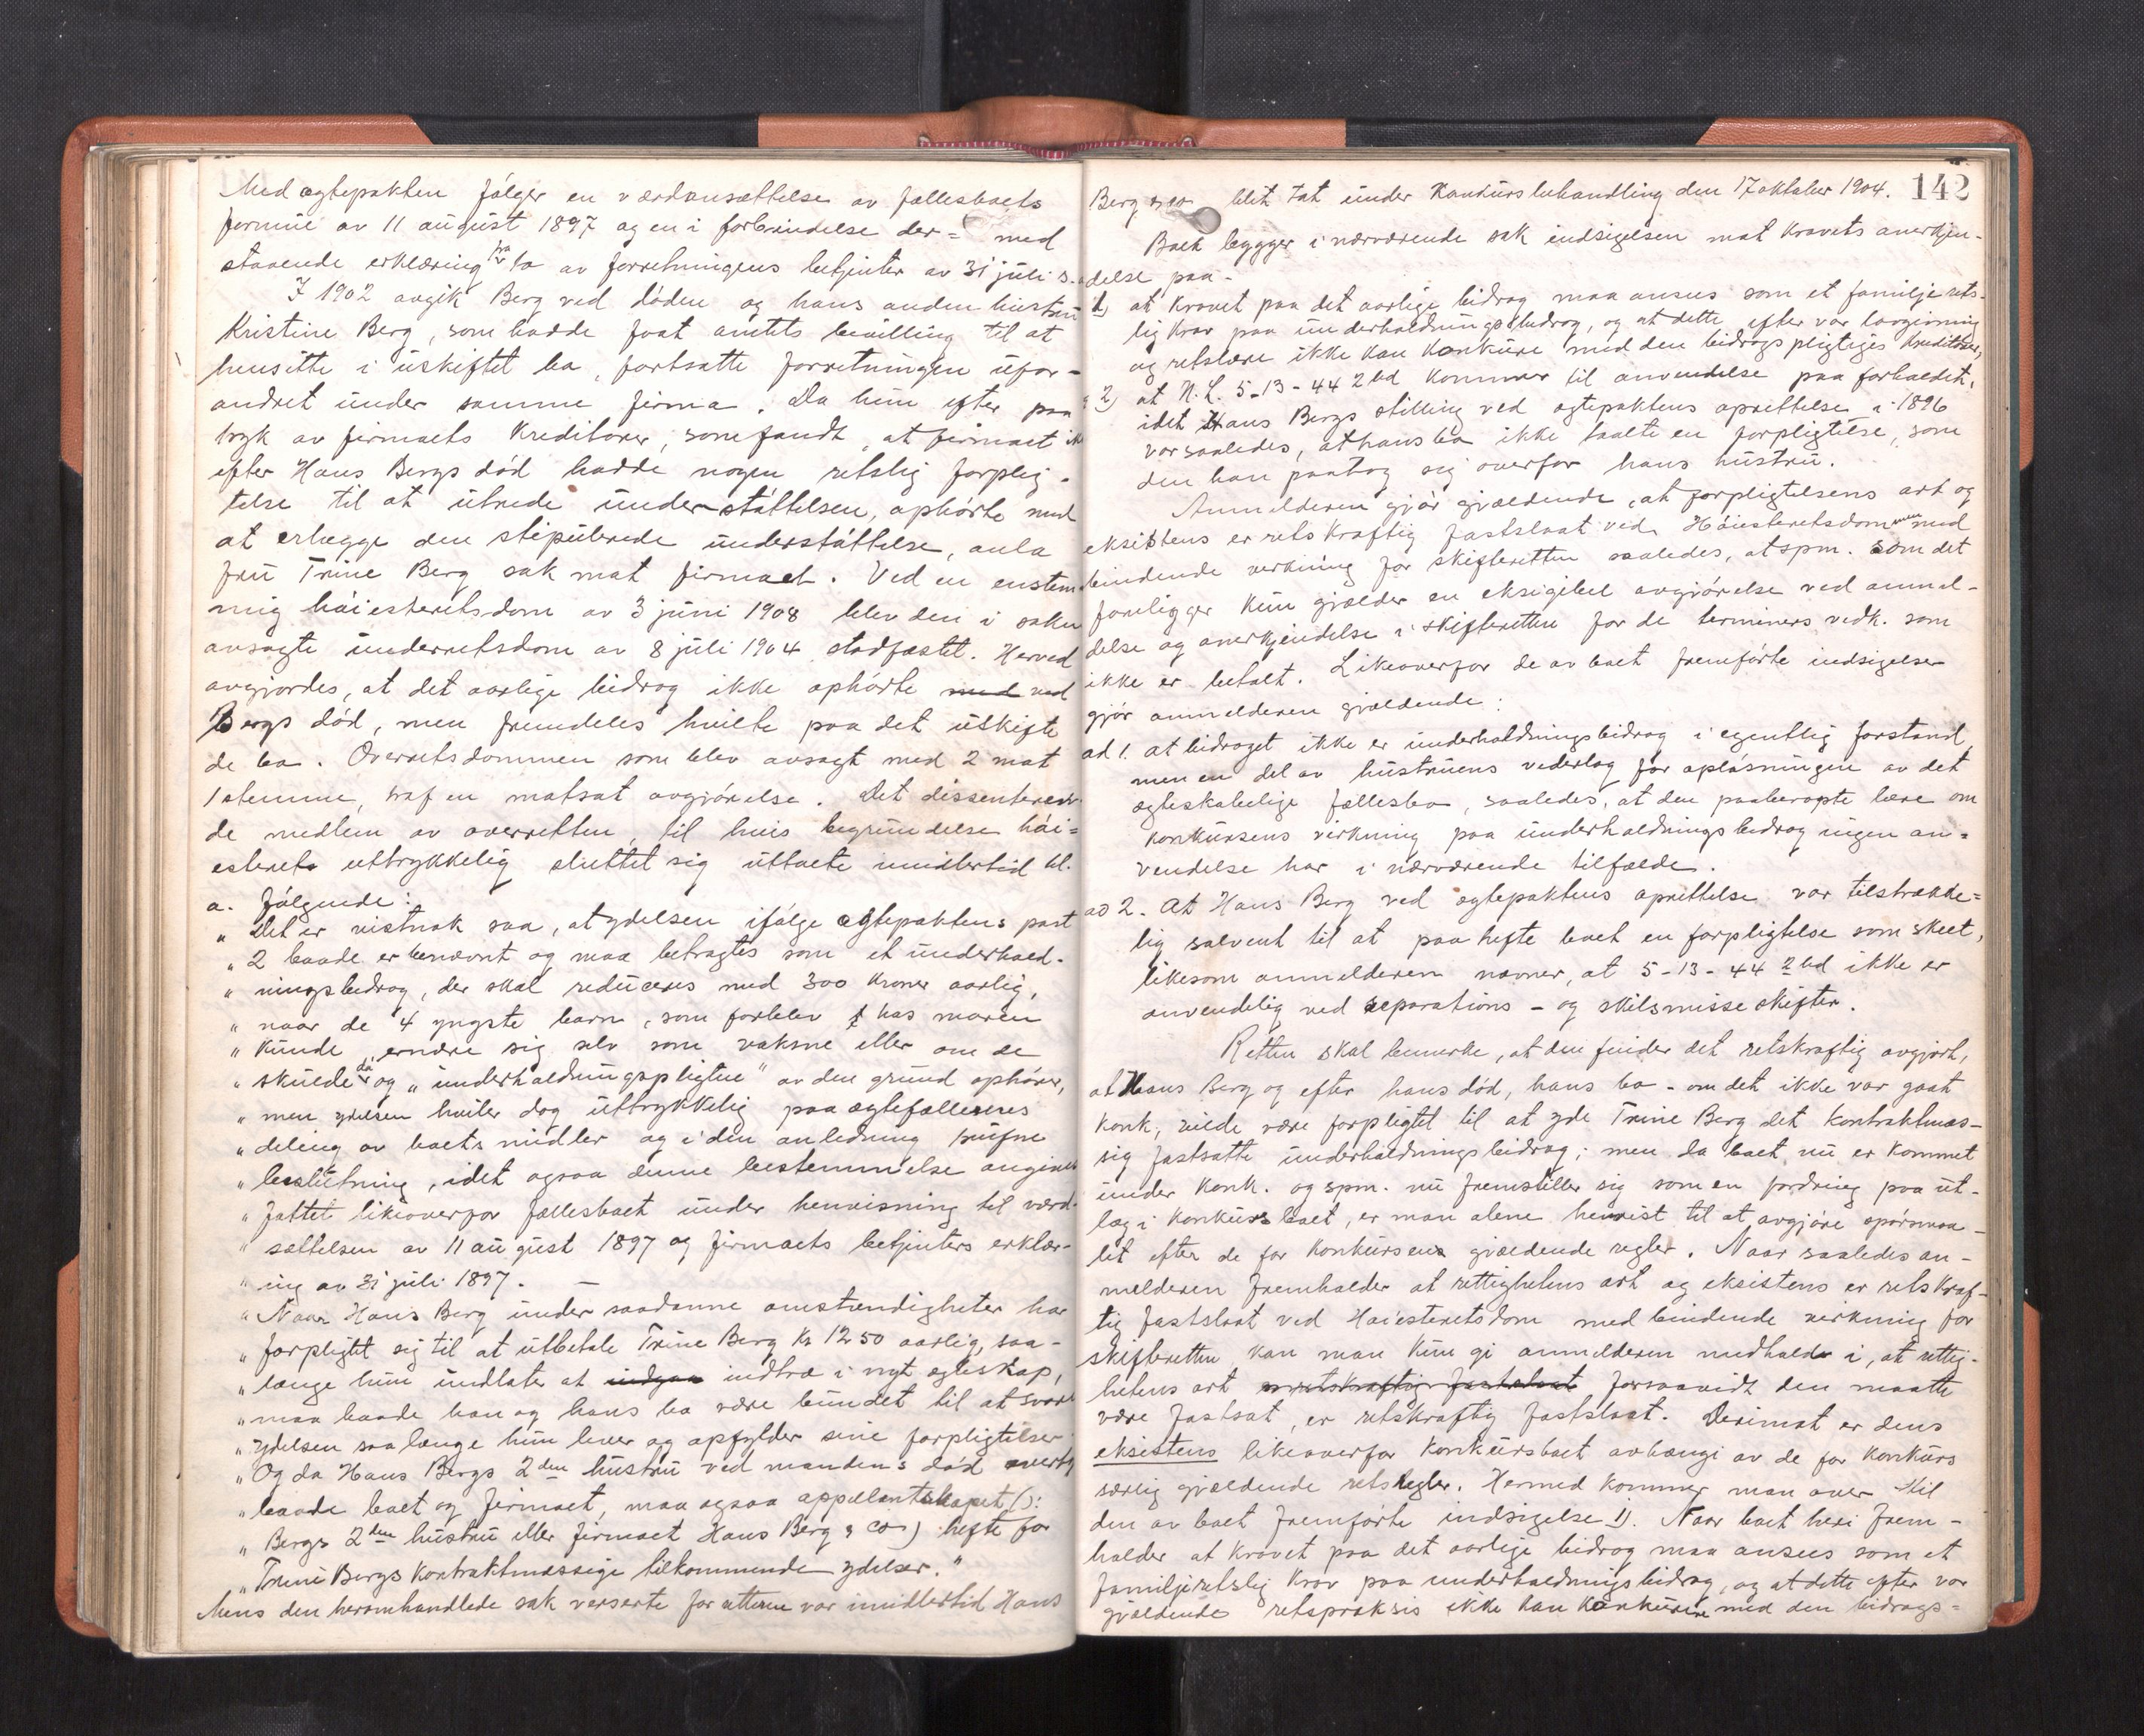 Med egtepakten følger en værdansættelse av fællesboets
formue av 11 august 1897 og en i forbindelse der= med
staaende erklæring fra to av forretningens betjenter av 31 juli s.a.
I 1902 avgik Berg ved døden og hans anden hustru
Kristine Berg, som hadde faat amtets bevilling til at
hensitte i uskiftet bo, fortsatte forretningen ufor-
andret under samme firma. Da hun efter paa
tryk av firmaets kreditorer, som fandt, at firmaet ikke
efter Hans Bergs død hadde nogen retslig forplig-
telse til at utrede understøttelsen, ophørte med
at erlægge den stipulerede understøttelse, anla
fru Trine Berg sak mot firmaet. Ved en enstem-
mig høiesteretsdom av 3 juni 1908 blev den i saken
avsagte underretsdom av 8 juli 1904 stadfæstet. Herved
avgjordes, at det aarlige bidrag ikke ophørte med ved
Bergs død, men fremdeles hvilte paa det uskifte
de bo. Overretsdommen som blev avsagt med 2 mot
1 stemme, traf en motsat avgjørelse. Det dissenteren-
de medlem av overretten, til hvis begrundelse høi=
esteret uttrykkelig sluttet sig uttaete imidlertid bl.
a. følgende:
„ Det er vistnok saa, at ydelsen ifølge egtepaktens post
„ 2 baade er benævnt og maa betragtes som et underhold-
„ ningsbidrag, der skal reduceres med 300 kroner aarlig,
„ naar de 4 yngste barn, som forblev hos moren
„ kunde ernære sig selv som voksne eller om de
„ skulde dø og „underholdningspligten" av den grund ophører,
„ men ydelsen hviler dog uttrykkelig paa egtefællernes
„ deling av boets midler og i den anledning trufne
„ beslutning, idet ogsaa denne bestemmelse angives
„ fattet likeoverfor fællesboet under henvisning til værd-
„ sættelsen av 11 august 1897 og firmaets betjenters erklær-
„ ing av 31 juli 1897. —
„ Naar Hans Berg under saadanne omstændigheter har
„ forpligtet sig til at utbetale Trine Berg Kr 1250 aarlig, saa-
„ længe hun undlater at indgaa indtræ i nyt egteskap,
„ maa baade han og hans bo være bundet til at svare
„ ydelsen saa længe hun lever og opfylder sine forpligtelser
„ Og da Hans Bergs 2den hustru ved mandens død overtok
„ baade boet og firmaet, maa ogsaa appellantskapet (ɔ:
„ Bergs 2den hustru eller firmaet Hans Berg & Co) hefte for
„ Trine Bergs kontraktmæssige tilkommende ydelser."
Mens den heromhandlede sak verserte for retterne var imidlertid Hans
142
Berg & Co blit tat under konkursbehandling den 17 oktober 1904.
Boet bygger i nærværende sak indsigelsen mot kravets anerkjen-
delse paa -
1) at kravet paa det aarlige bidrag maa ansees som et familjerets-
lig krav paa underholdningsbidrag, og at dette efter vor lovgivning
og retslære ikke kan konkurere med den bidragspligtiges kreditorer,
2) at N. L. 5-13-44 2 led kommer til anvendelse paa forholdet,
idet Hans Bergs stilling ved egtepaktens oprettelse i 1896
var saaledes, at hans bo ikke taalte en forpligtelse, som
den han paatog sig overfor hans hustru.
Anmelderen gjør gjældende, at forpligtelsens art og
eksistens er retskraftig fastslaat ved Høiesteretsdommen med
bindende virkning for skifteretten saaledes, at spm. som det
foreligger kun gjælder en eksigibel avgjørelse ved anmel-
delse og anerkjendelse i skifteretten for de terminers vedk. som
ikke er betalt. Likeoverfor de av boet fremførte indsigelser
gjør anmelderen gjældende:
ad 1. at bidraget ikke er underholdningsbidrag i egentlig forstand,
men en del av hustruens vederlag for opløsningen av det
egteskabelige fællesbo, saaledes, at den paaberopte lære om
konkursens virkning paa underholdningsbidrag ingen an=
vendelse har i nærværende tilfælde.
ad 2. At Hans Berg ved egtepaktens oprettelse var tilstrække=
lig solvent til at paahefte boet en forpligtelse som skeet,
likesom anmelderen nævner, at 5-13-44 2 led ikke er
anvendelig ved separations- og skilsmisse skifter.
Retten skal bemerke, at den finder det retskraftig avgjort,
at Hans Berg og efter hans død, hans bo - om det ikke var gaat
konk, vilde være forpligtet til at yde Trine Berg det kontraktmæs-
sig fastsatte underholdningsbidrag; men da boet nu er kommet
under konk. og spm. nu fremstiller sig som en fordring paa ut-
læg i konkursboet, er man alene henvist til at avgjøre spørsmaa-
let efter de for konkursens gjældende regler. Naar saaledes an-
melderen fremholder at rettighetens art og eksistens er retskraf-
tig fastslaat ved Høiesteretsdom med bindende virkning for
skifteretten kan man kun gi anmelderen medhold i, at rettig-
hetens art er retskraftig fastslaat forsaavidt den maatte
være fastsat, er retskraftig fastslaat. Derimot er dens
eksistens likeoverfor konkursboet avhængi av de for konkurs
særlig gjældende retsregler. Hermed kommer man over til
den av boet fremførte indsigelse 1). Naar boet heri frem-
holder at kravet paa det aarlige bidrag maa ansees som et
familjeretslig krav paa underholdningsbidrag, og at dette efter vor
gjældende retspraksis ikke kan konkurere med den bidrags=